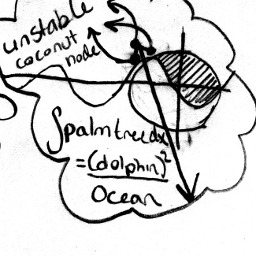 unstable
coconut
node
∫palmtree dx
=(dolphin)²
Ocean